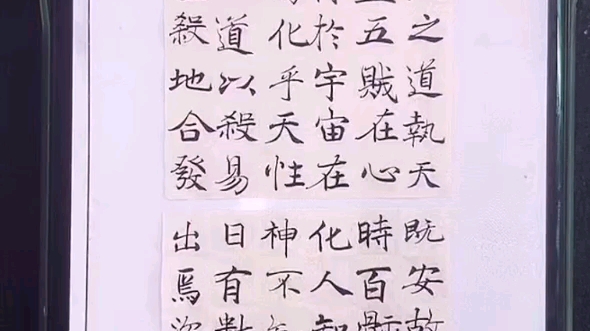 之道執天
五賊在心
於宇宙在
化乎天性
道以殺易
殺地合發
既安故
時百骸
化人知
神不
日有數
出焉